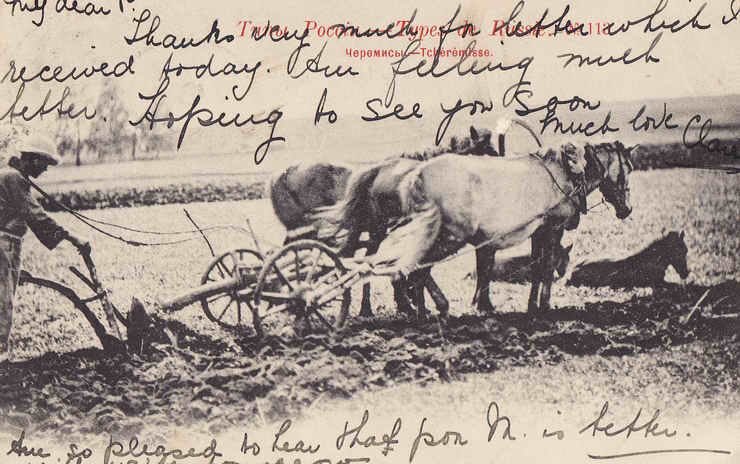 My dear
Типы России. Types de Russie. № 113
Черемисы.—Tchérémisse.
Thanks very much for letter which I
received today. Am feeling much
better. Hoping to see you soon
much love
Am so pleased to hear that M. is better.